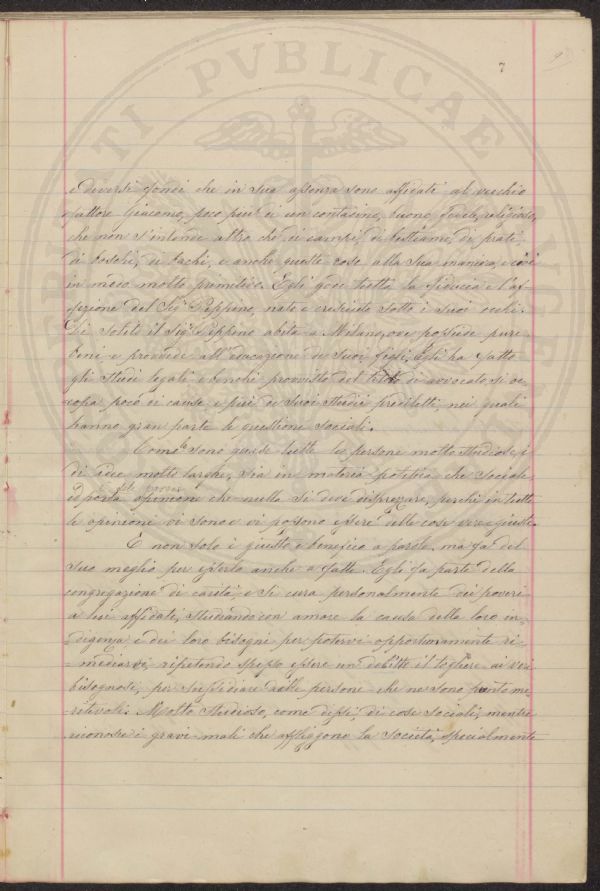 7
e diversi fondi che in sua assenza sono affidati al vecchio
fattore Giacomo, poco più di un contadino, buono, fedele, religioso,
che non s'intende altro che di campi, di bestiame, di prati,
di boschi, di bachi, e anche queste cose alla sua maniera, e così
in modo molto primitivo. Egli gode tutta la fiducia e l'af-
fezione del Sig. Peppino, nato e cresciuto sotto i suoi occhi.
Di solito il Sig. Peppino abita a Milano, ove possiede pure
beni e provvede all'educazione de' suoi figli. Egli ha fatto
gli studi legali e benchè provvisto del titolo di avvocato si oc-
cupa poco di cause e più de' suoi studii prediletti, nei quali
hanno gran parte le questione sociali.
Come lo sono quasi tutte le persone molto studiose, è
di idee molte larghe, sia in materia politica che sociale,
ed porta opinione che nulla si deve disprezzare, perchè in tutte
le opinione vi sono e vi possono essere delle cose vere e giuste.
E non solo è giusto e benefico a parole, ma fa del
suo meglio per esserlo anche a fatti. Egli fa parte della
congregazione di carità, e si cura personalmente dei poveri
a lui affidati, studiando con amore la causa della loro in-
digenza e dei loro bisogni per potervi opportunamente ri-
mediarvi, ripetendo spesso essere un delitto il togliere ai veri
bisognosi, per sussidiare delle persone che ne sono punto me-
ritevoli. Molto studioso, come dissi, di cose sociali, mentre
riconosce i gravi mali che affliggono la società, specialmente